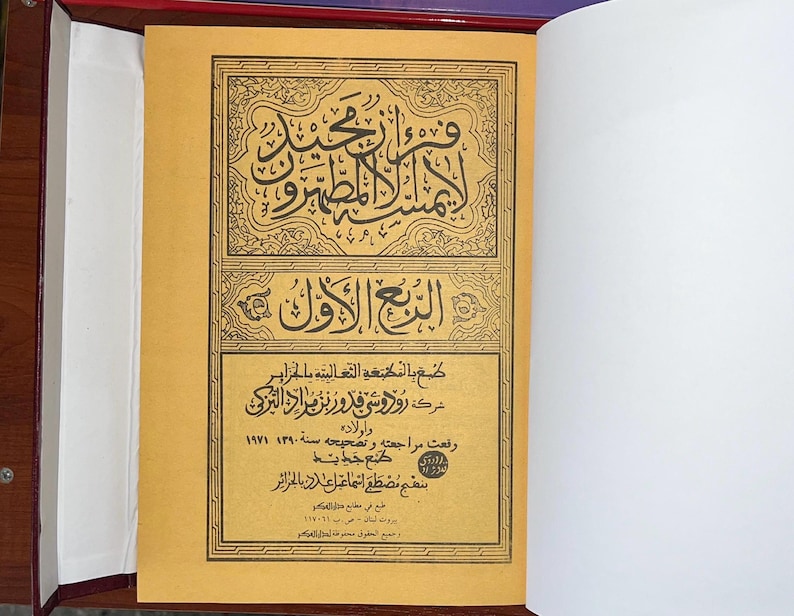 قرءان مجيد
لا يمسه إلا المطهرون
الربع الأول
طبع بالمطبعة الثعالبية بالجزائر
شركة رودوسي قدور بن مراد التركي
واولاده
وقعت مراجعته و تصحيحه سنة ١٣٩٠ ١٩٧١
طبع جديد
بنهج مصطفى اسماعيل عدد بالجزائر
طبع في مطابع دار الفكر
بيروت لبنان - ص.ب ١١٧٠٦١
وجميع الحقوق محفوظة لدار الفكر